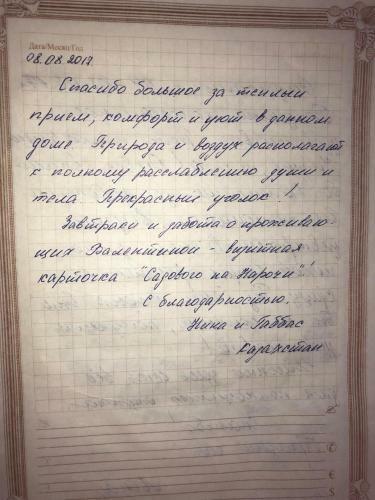 Дата/Месяц/Год
08.08.2017
Спасибо большое за тёплый
приём, комфорт и уют в данном
доме. Природа и воздух располагают
к полному расслаблению души и
тела. Прекрасный уголок!
Завтраки и забота о проживаю-
щих Валентиной - визитная
карточка "Садового на Нарочи"!
С благодарностью.
Нина и Габбас
Казахстан